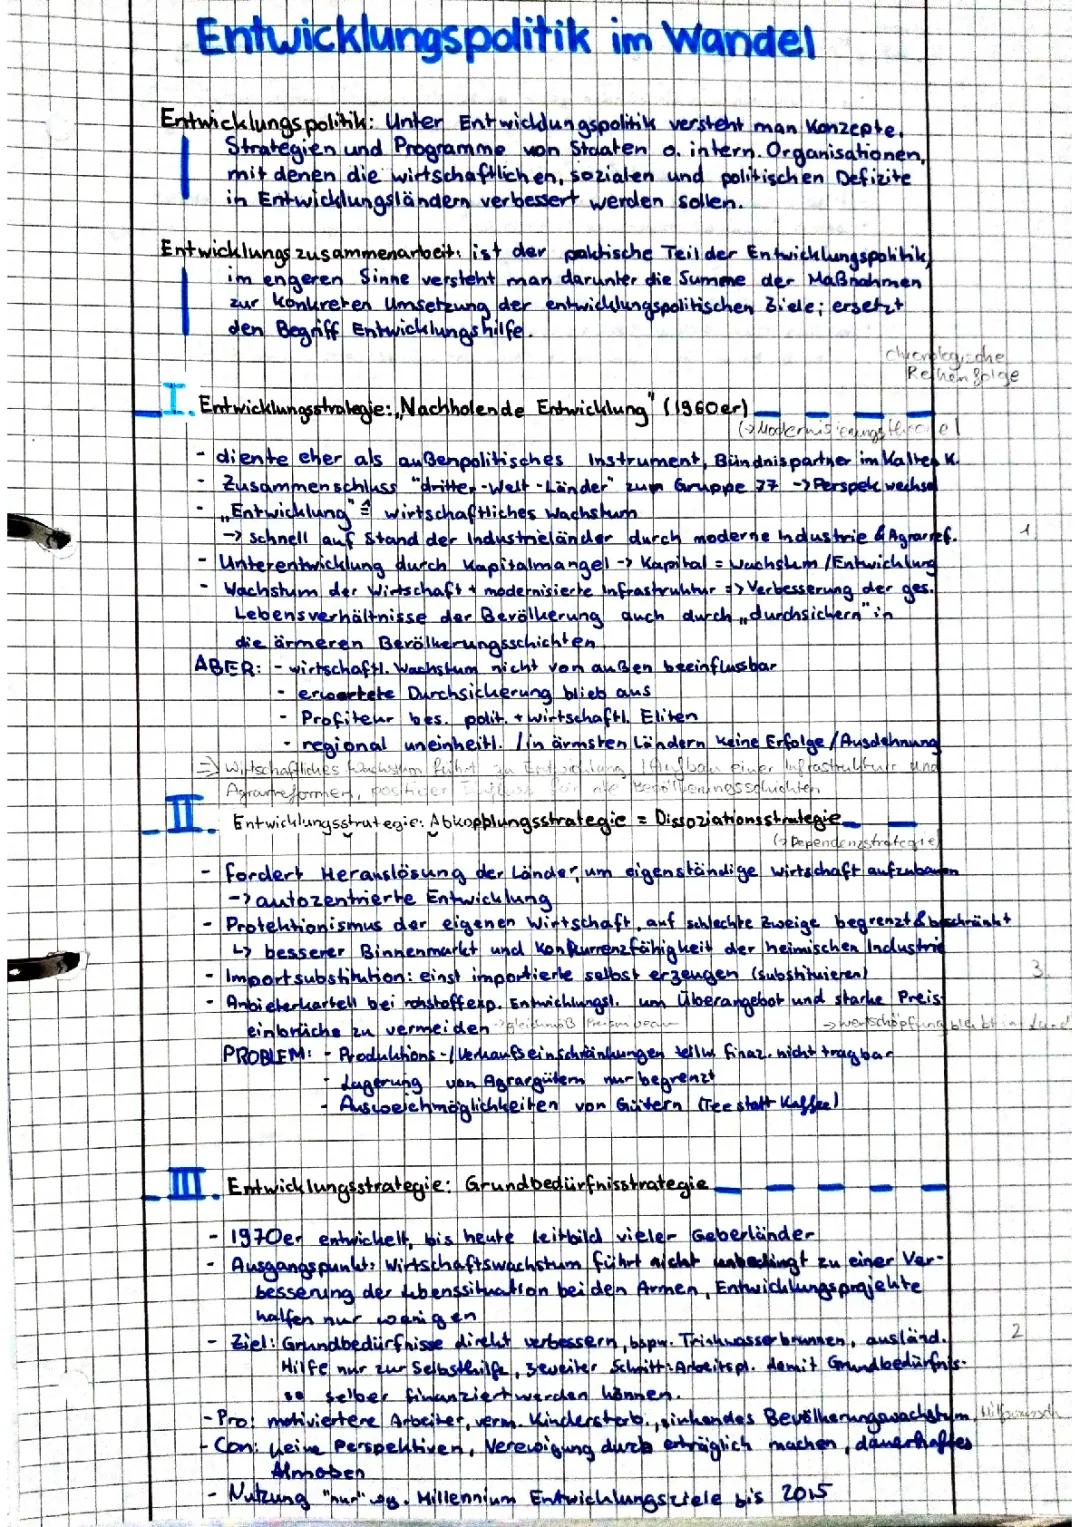 Entwicklungspolitik im Wandel
Entwicklungspolitik: Unter Entwicklungspolitik versteht man Konzepte,
Strategien und Programme von Staaten o. intern. Organisationen,
mit denen die wirtschaftlichen, sozialen und politischen Defizite
in Entwicklungsländern verbessert werden sollen.
Entwicklungszusammenarbeit: ist der paktische Teil der Entwicklungspolitik,
im engeren Sinne versteht man darunter die Summe der Maßnahmen
zur konkreten Umsetzung der entwicklungspolitischen Ziele; ersetzt
den Begriff Entwicklungshilfe.
chronologische
Reihenfolge
I. Entwicklungsstrategie: „Nachholende Entwicklung" (1960er)
(→Modernisierungstheorie)
- diente eher als außenpolitisches Instrument, Bündnispartner im Kalten K.
- Zusammenschluss "dritter-Welt-Länder" zum Gruppe 77 -> Perspekwechsel
- „Entwicklung" ≙ wirtschaftliches Wachstum
-> schnell auf Stand der Industrieländer durch moderne Industrie & Agrarref.
1
- Unterentwicklung durch Kapitalmangel -> Kapital = Wachstum/Entwicklung
- Wachstum der Wirtschaft + modernisierte Infrastruktur => Verbesserung der ges.
Lebensverhältnisse der Bevölkerung auch durch „durchsichern" in
die ärmeren Bevölkerungsschichten
ABER: - wirtschaftl. Wachstum nicht von außen beeinflussbar
- erwartete Durchsickerung blieb aus
- Profiteur bes. polit. + wirtschaftl. Eliten
- regional uneinheitl. / in ärmsten Ländern keine Erfolge/Ausdehnung
=> Wirtschaftliches Wachstum führt zu Entwicklung (Aufbau einer Infrastruktur und
Agrarreformen, positiver Einfluss für alle Bevölkerungsschichten
II. Entwicklungsstrategie: Abkopplungsstrategie = Dissoziationsstrategie
(→Dependenzstrategie)
- fordert Herauslösung der Länder, um eigenständige Wirtschaft aufzubauen
-> autozentrierte Entwicklung
- Protektionismus der eigenen Wirtschaft, auf schlechte Zweige begrenzt & beschränkt
↳ besserer Binnenmarkt und Konkurrenzfähigkeit der heimischen Industrie
- Importsubstitution: einst importierte selbst erzeugen (substituieren)
3.
- Anbieterkartell bei rohstoffexp. Entwicklungsl. um Überangebot und starke Preis-
einbrüche zu vermeiden → Wertschöpfung bleibt im Land
PROBLEM: - Produktions-/Verkaufseinschränkungen teilw. finaz. nicht tragbar
- Lagerung von Agrargütern nur begrenzt
- Ausweichmöglichkeiten von Gütern (Tee statt Kaffee)
III. Entwicklungsstrategie: Grundbedürfnisstrategie
- 1970er entwickelt, bis heute Leitbild vieler Geberländer
- Ausgangspunkt: Wirtschaftswachstum führt nicht unbedingt zu einer Ver-
besserung der Lebenssituation bei den Armen, Entwicklungsprojekte
halfen nur wenigen
- Ziel: Grundbedürfnisse direkt verbessern, bspw. Trinkwasserbrunnen, ausländ.
2
Hilfe nur zur Selbsthilfe, zweiter Schritt: Arbeitspl. damit Grundbedürfnis-
se selber finanziert werden können.
- Pro: motiviertere Arbeiter, verm. Kindersterb., sinkendes Bevölkerungswachstum,
- Con: keine Perspektiven, Verewigung durch erträglich machen, dauerhaftes
Almosen
- Nutzung "nur" wg. Millennium Entwicklungsziele bis 2015